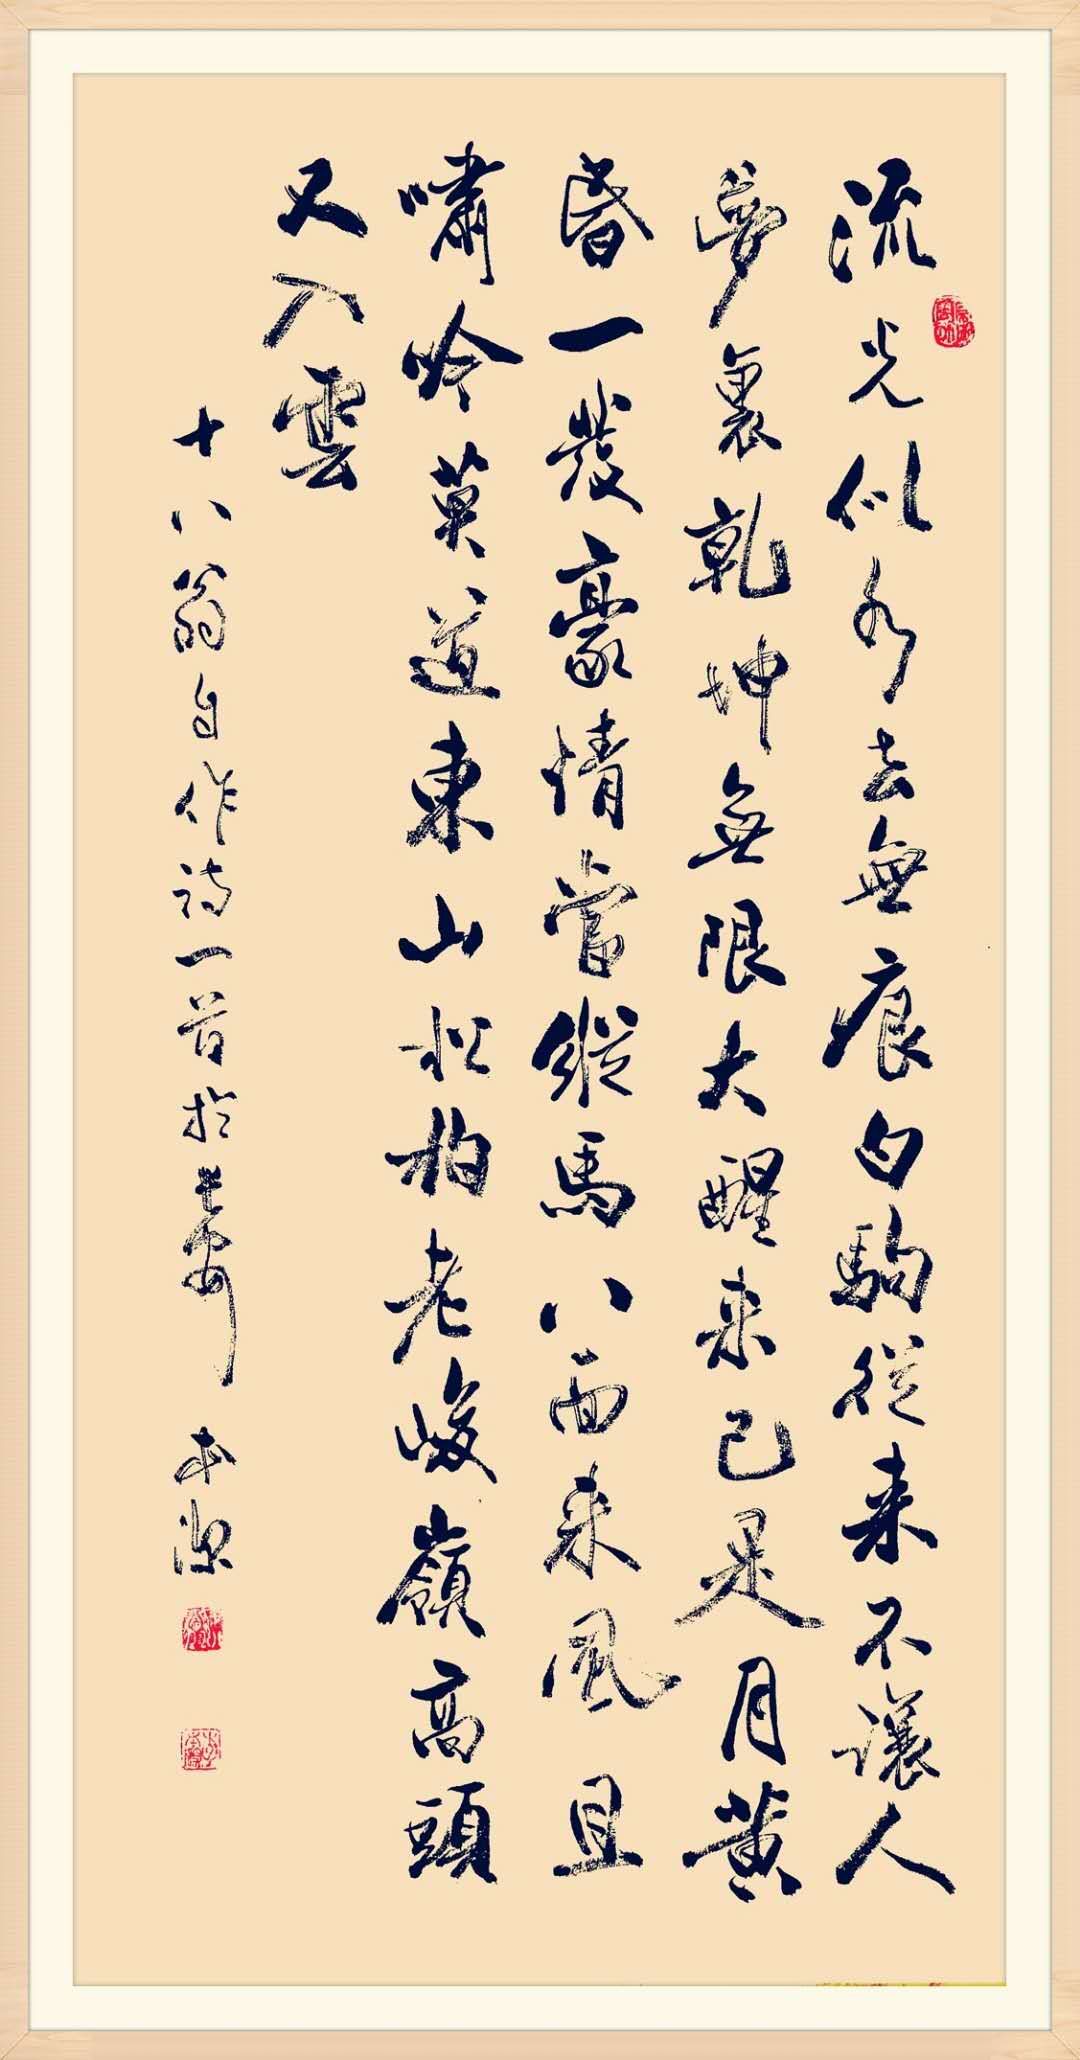 流光似水去無痕白駒從来不讓人
夢裏乾坤無限大醒来已是月黄
昏一發豪情嘗縱馬八面来風且
嘯吟莫道東山松柏老峻嶺高頭
又入雲
十八翁自作詩一首於長安 本